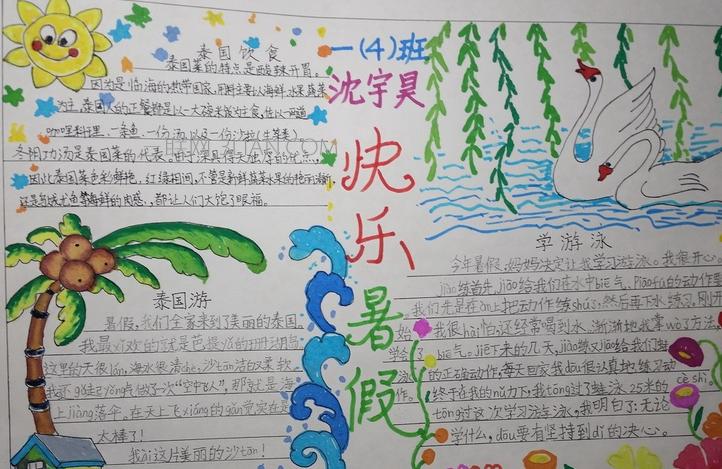 泰国饮食
泰国菜的特点是酸辣开胃。
因为是临海的热带国家,用料主要以海鲜水果蔬菜
为主,泰国人的正餐都是以一大碗米饭为主食,佐以一两道
咖哩料理、一条鱼、一份汤以及一份沙拉(生菜类)
冬阴功汤是泰国菜的代表,
因此泰国菜色彩鲜艳,红绿相间,
都让人们大饱了眼福。
一(4)班
沈宇昊
快乐暑假
泰国游
暑假,我们全家来到了美丽的泰国。
我最xǐ欢的就是芭提yǎ的珊瑚岛
这里的天很lán,海水很清chè,沙tān洁白柔软
我还gǔ足yǒng气做了一次“空中飞人”,那就是海
上jiàng落伞,在天上飞xiáng的gǎn觉实在是
太棒了!
我ài这片美丽的沙tān!
学游泳
今年暑假,妈妈决定让我学习游泳。我很开心。
jiāo练首先jiāo给我们在水中biē气、Piāofú的动作要
我们先是在àn上把动作练shú,然后再下水练习。刚开
始,我很hài怕,还经常喝到水,渐渐地我掌wò了方法,
学会了biē气。jiē下来的几天,jiāo练又jiāo给我们蛙
泳的正确动作,每天回家我dōu很认真地练习动
作。终于在我的nǔ力下,我tōng过了蛙泳25米的
cè shì。
tōng过这次学习法蛙泳,我明白了:无论
学什么,dōu要有坚持到dǐ的决心。